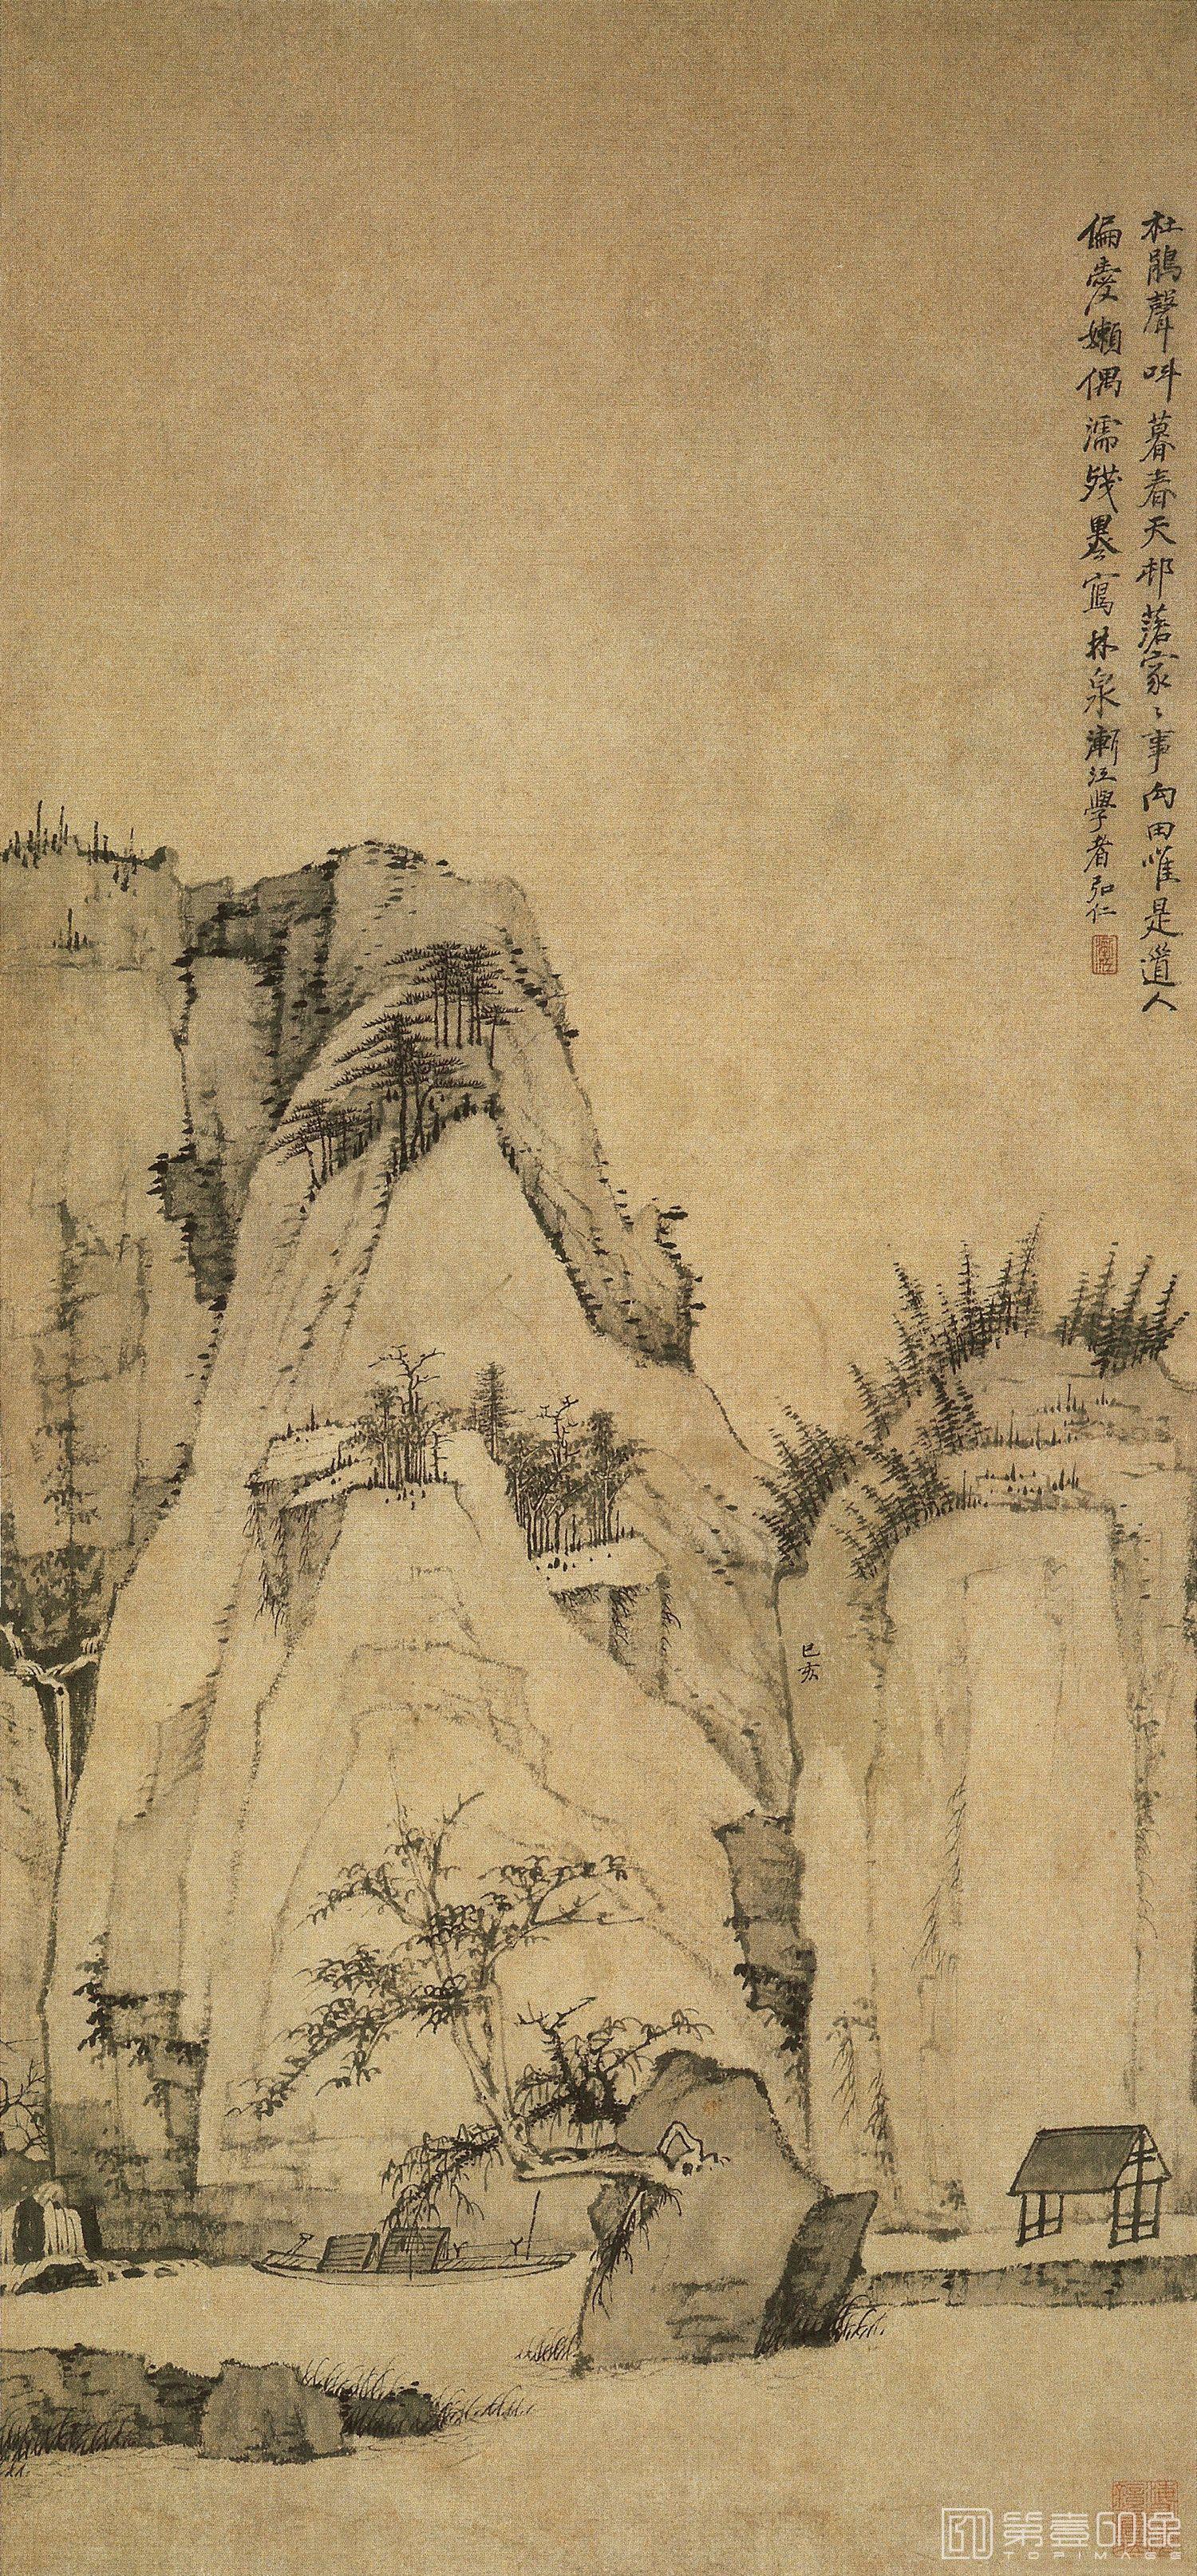 杜鵑聲叫暮春天邨落家〻事向田惟是道人
偏愛嬾偶濡殘墨寫林泉漸江學者弘仁
己亥
第壹印像
TOPIMAGE